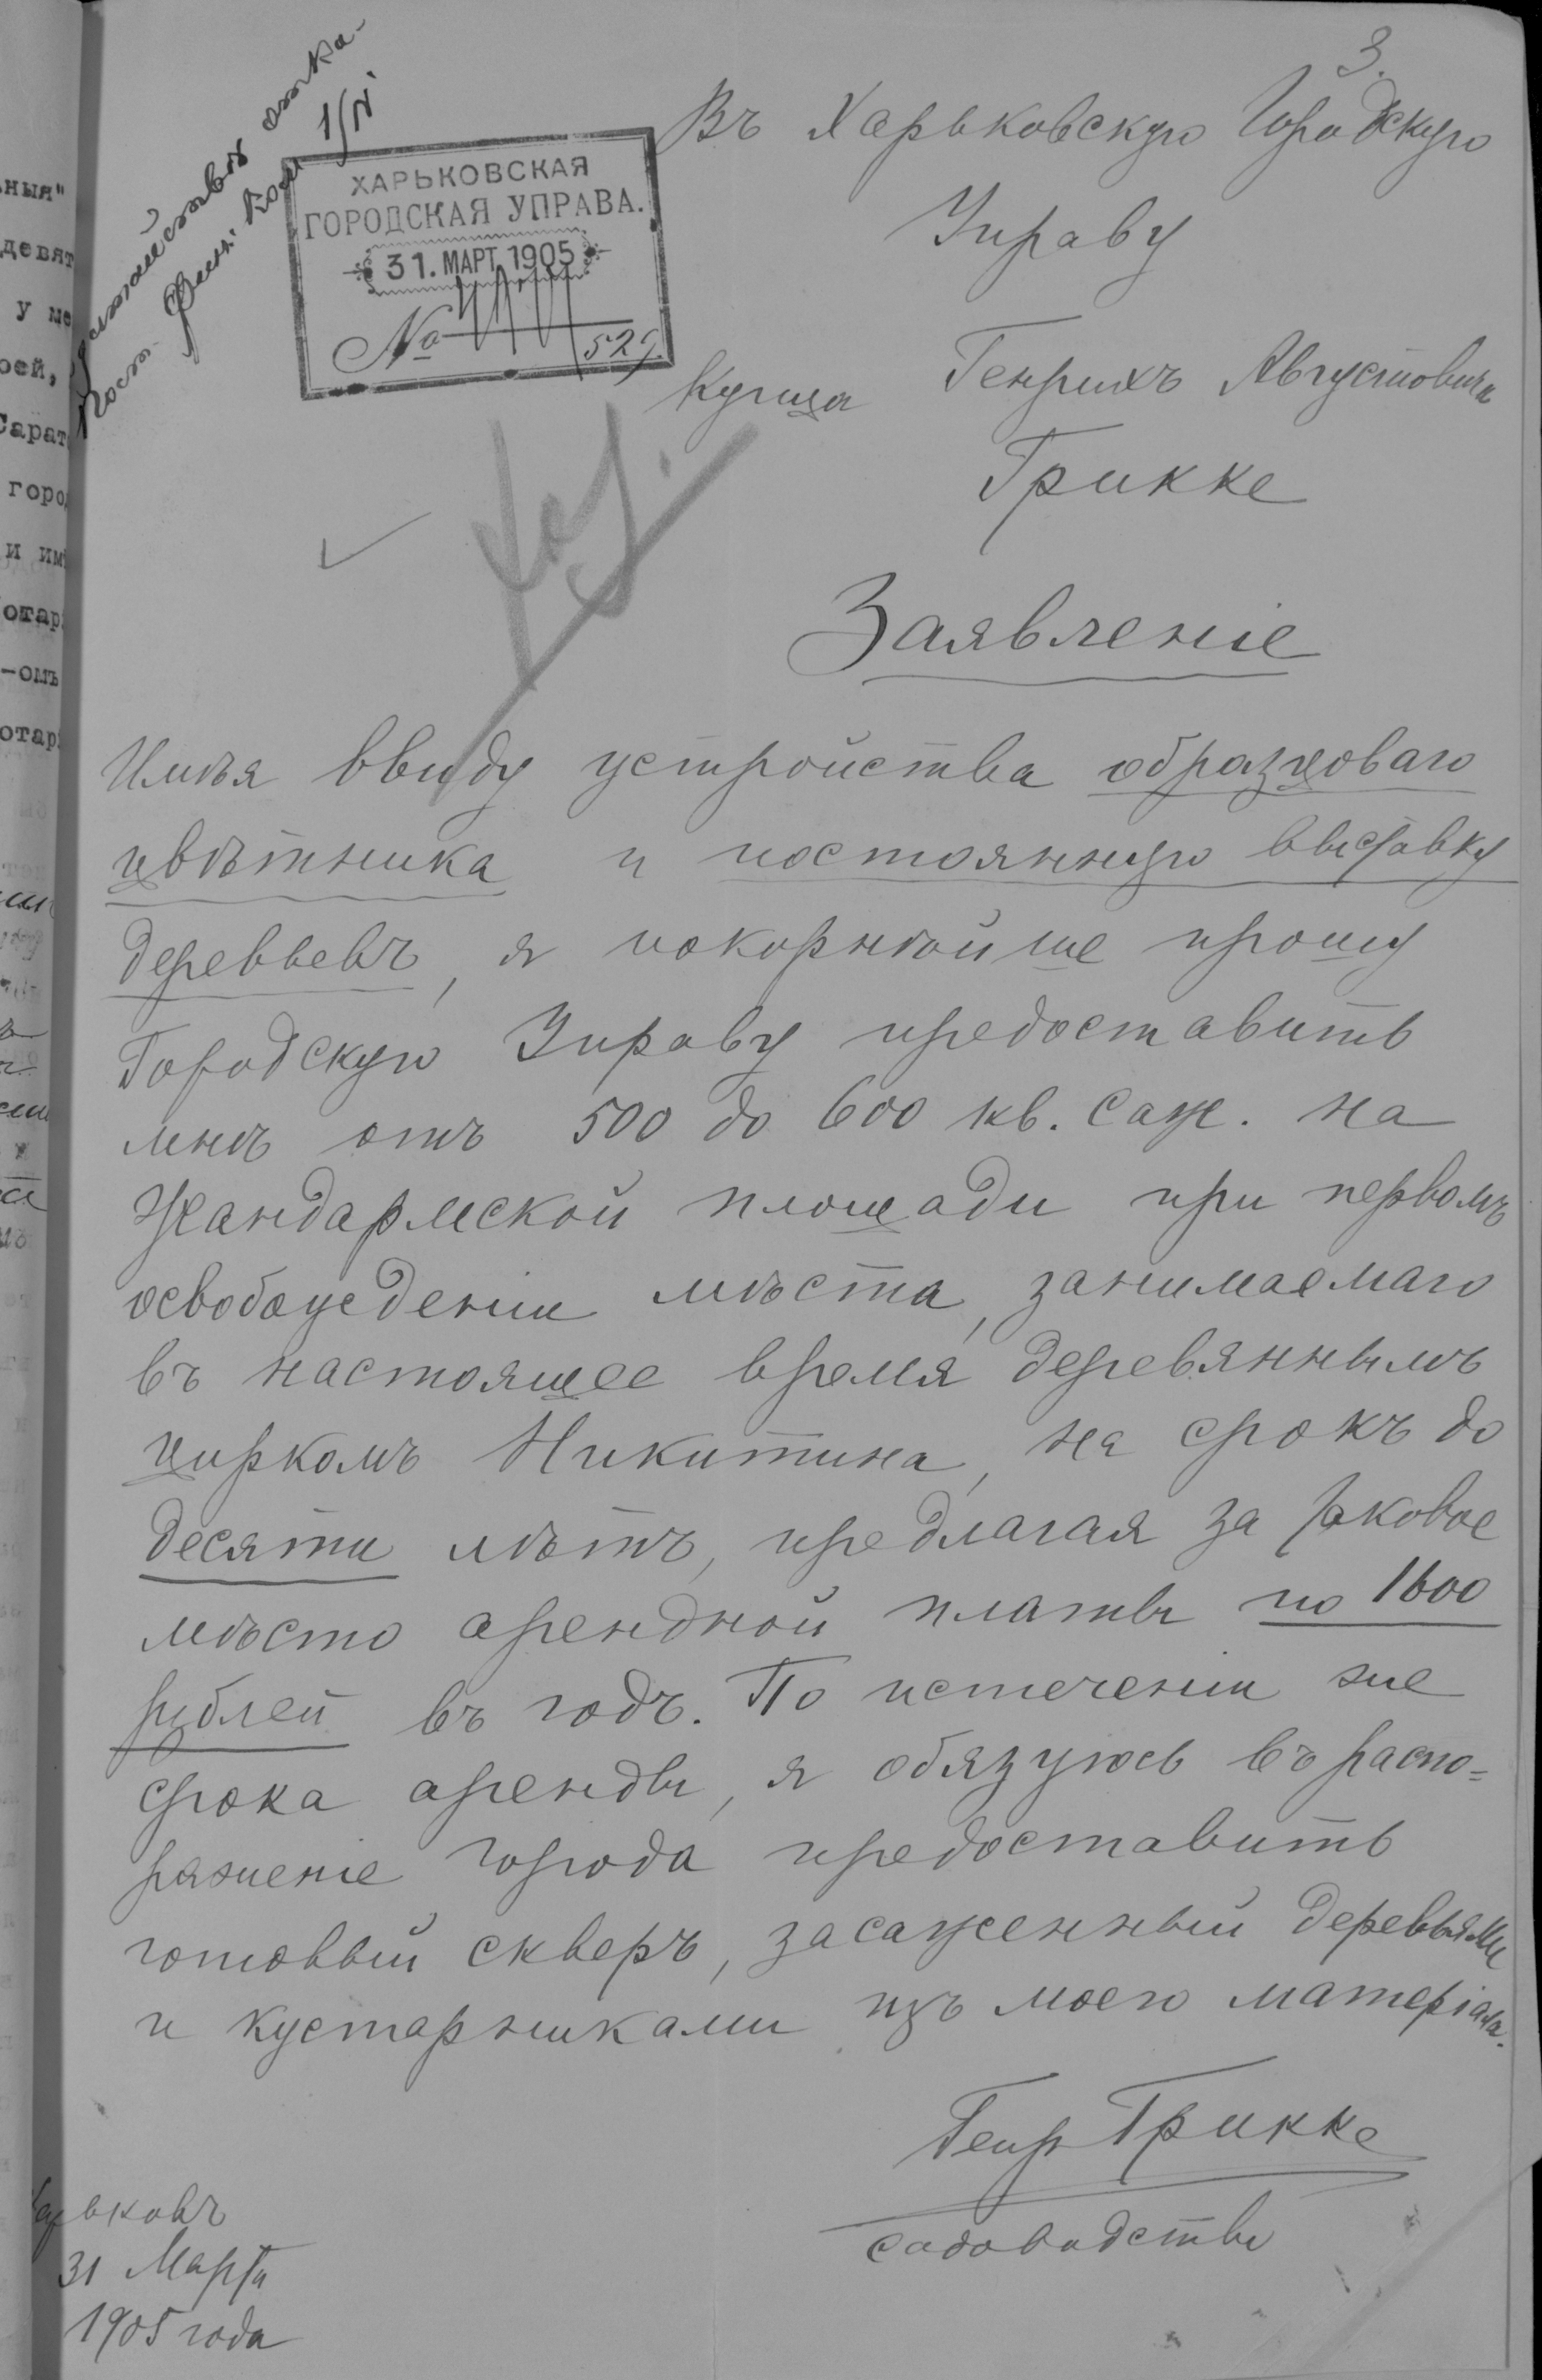 3.
Въ Харьковскую Городскую
Управу
ХАРЬКОВСКАЯ
ГОРОДСКАЯ УПРАВА.
31. МАРТ. 1905
№
529
Купца Генрихъ Августовича
Грикке
Заявленіе
Имѣя ввиду устройства образцоваго
цвѣтника и постоянную выставку
деревьевъ, я покорнѣйше прошу
Городскую Управу предоставить
мнѣ отъ 500 до 600 кв. саж. на
Жандармской площади при первомъ
освобожденіи мѣста, занимаемаго
въ настоящее время деревяннымъ
циркомъ Никитина, на срокъ до
десяти лѣтъ, предлагая за таковое
мѣсто арендной платы по 1600
рублей въ годъ. По истеченіи же
срока аренды, я обязуюсь въ распо=
ряженіе города предоставить
готовый скверъ, засаженный деревьями
и кустарниками изъ моего матеріала.
Генр Грикке
садоводство
Харьковъ
31 Марта
1905 года
ныя"
девят
у ме
оей,
Сарат
горо
и им
отар
-омъ
отар